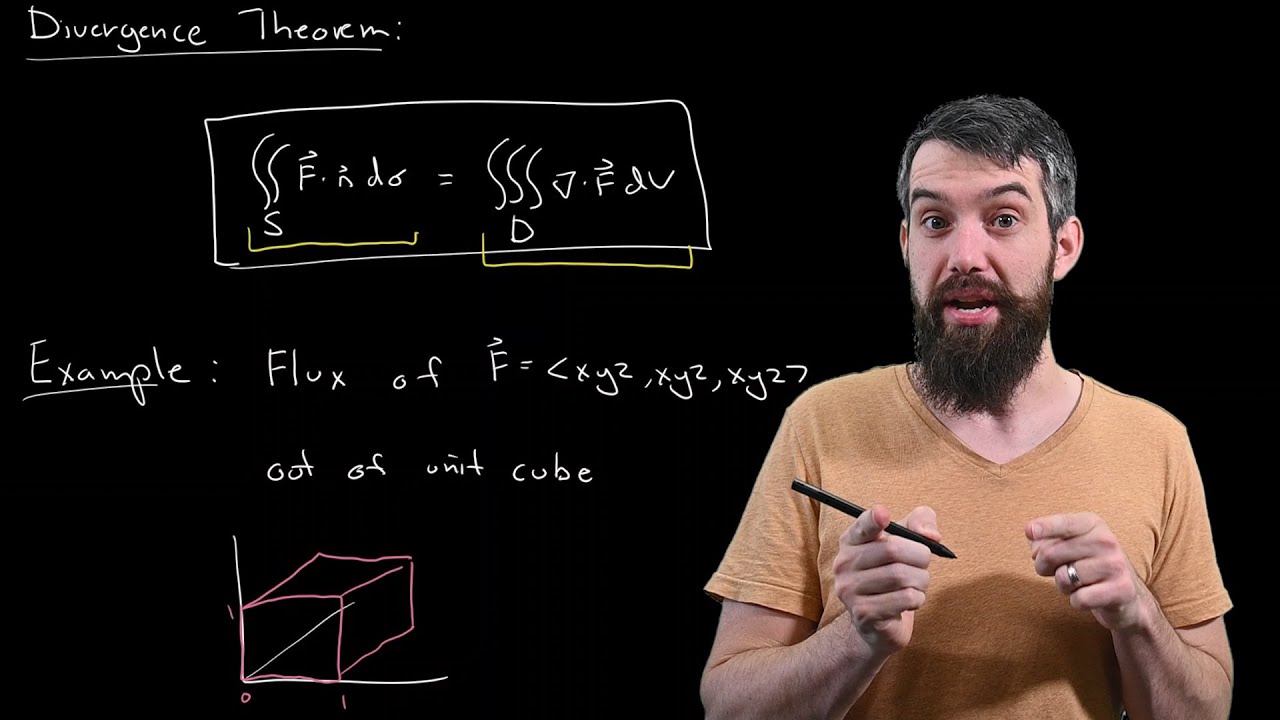 Divergence Theorem:
∬_S F⃗·n⃗ dσ = ∭_D ∇·F⃗ dV
Example: Flux of F⃗ = <xyz, xyz, xyz>
out of unit cube
1
0 1